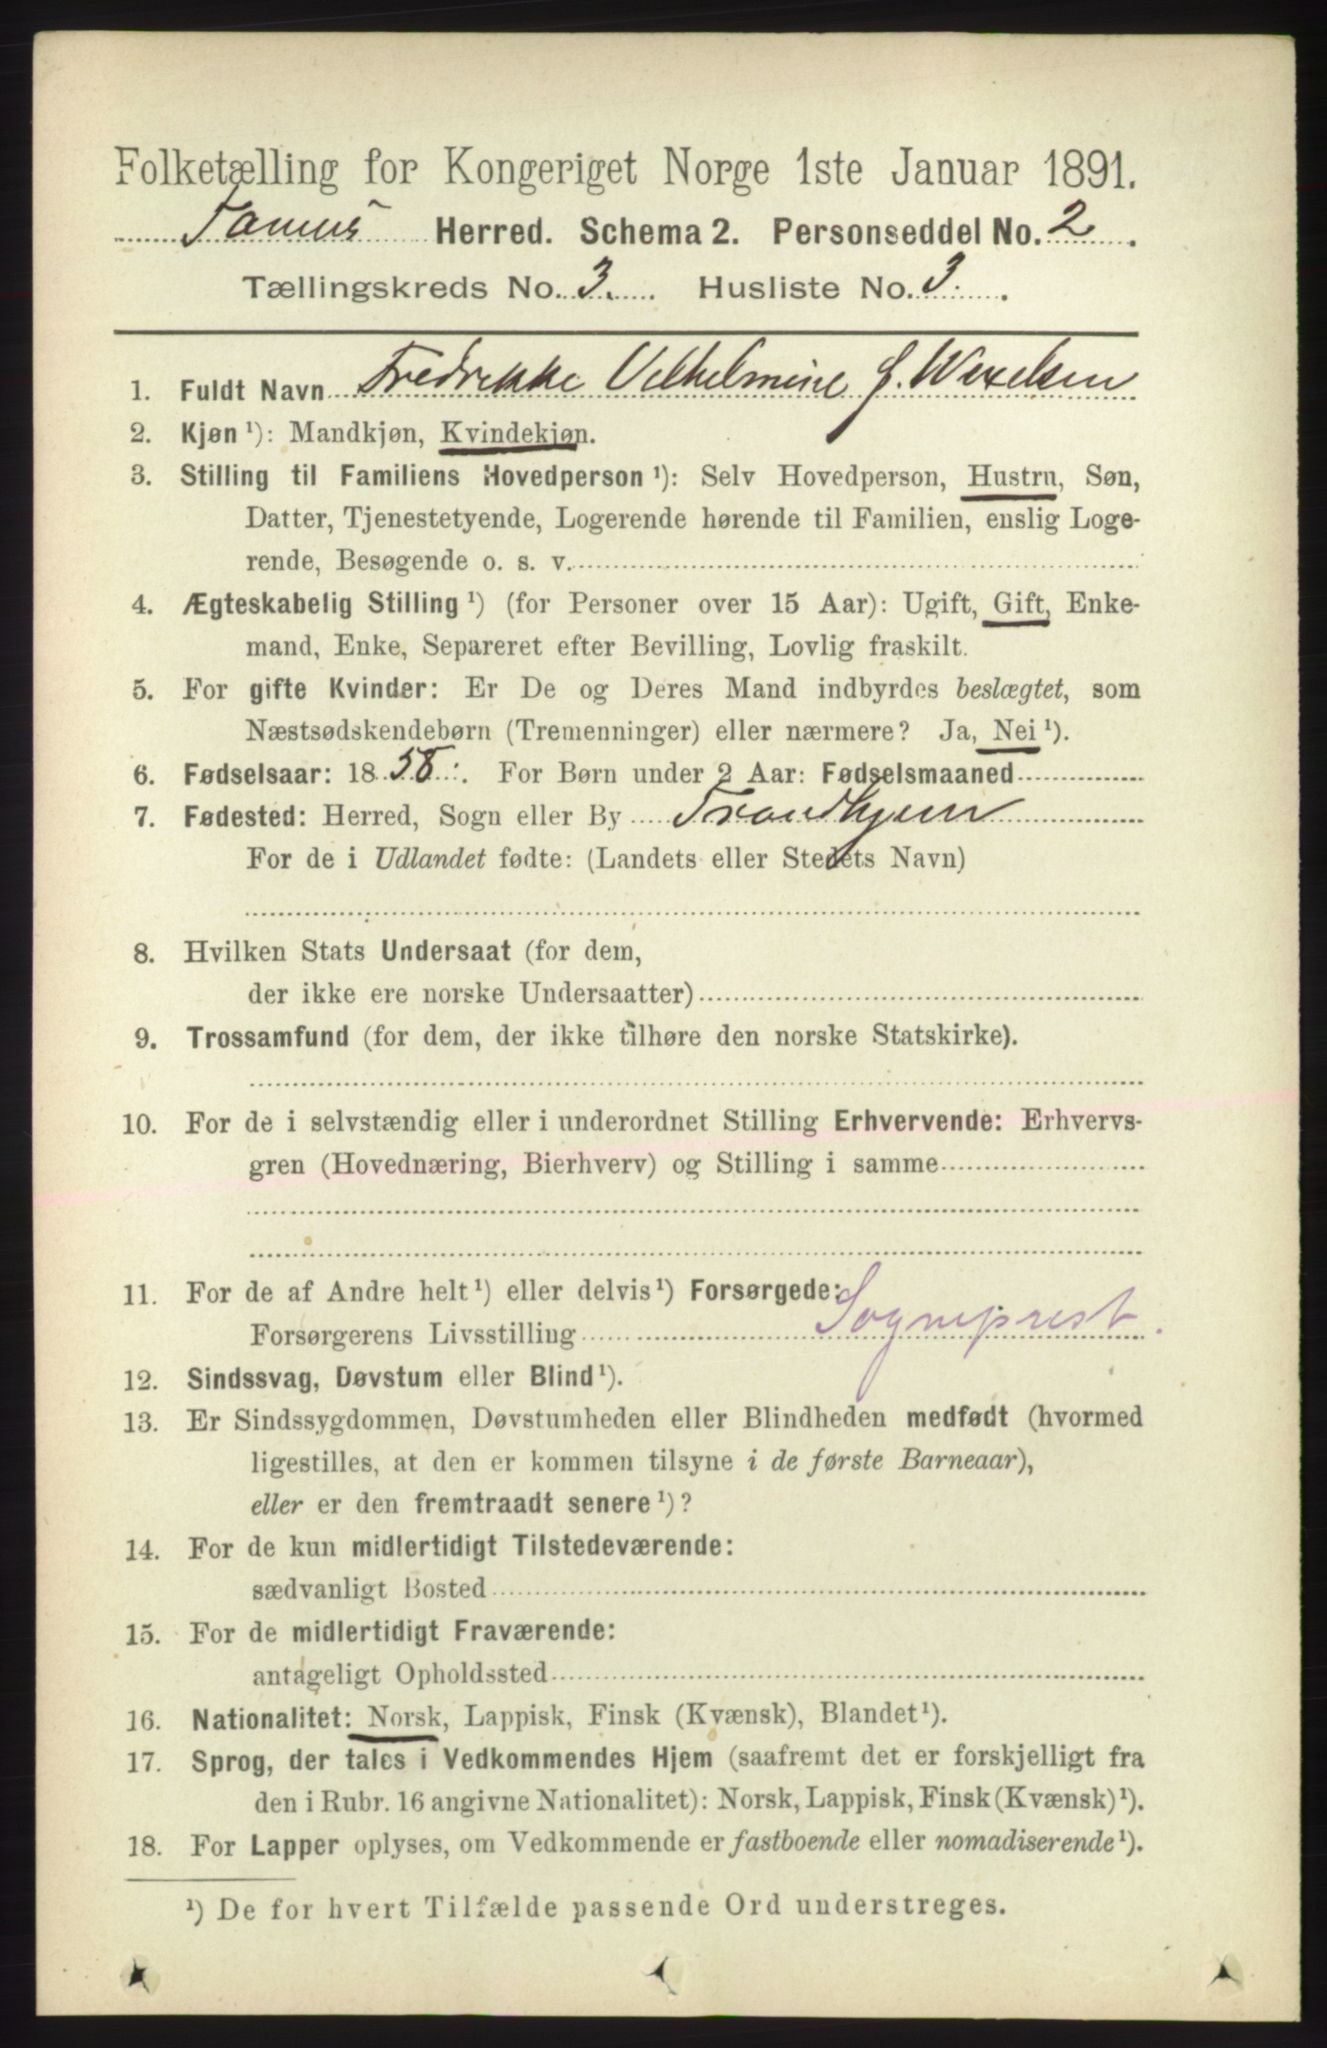 Folketælling for Kongeriget Norge 1ste Januar 1891.
Herred. Schema 2. Personseddel No. 2.
Tællingskreds No. 3. Husliste No. 3.
1. Fuldt Navn Fredrekke Velhelmine G. Wexelsen
2. Kjøn ¹): Mandkjøn, Kvindekjøn.
3. Stilling til Familiens Hovedperson ¹): Selv Hovedperson, Hustru, Søn,
Datter, Tjenestetyende, Logerende hørende til Familien, enslig Loge-
rende, Besøgende o. s. v.
4. Ægteskabelig Stilling ¹) (for Personer over 15 Aar): Ugift, Gift, Enke-
mand, Enke, Separeret efter Bevilling, Lovlig fraskilt.
5. For gifte Kvinder: Er De og Deres Mand indbyrdes beslægtet, som
Næstsødskendebørn (Tremenninger) eller nærmere? Ja, Nei ¹).
6. Fødselsaar: 1858. For Børn under 2 Aar: Fødselsmaaned
7. Fødested: Herred, Sogn eller By Trondhjem
For de i Udlandet fødte: (Landets eller Stedets Navn)
8. Hvilken Stats Undersaat (for dem,
der ikke ere norske Undersaatter)
9. Trossamfund (for dem, der ikke tilhøre den norske Statskirke).
10. For de i selvstændig eller i underordnet Stilling Erhvervende: Erhvervs-
gren (Hovednæring, Bierhverv) og Stilling i samme
11. For de af Andre helt ¹) eller delvis ¹) Forsørgede:
Forsørgerens Livsstilling Sogneprest.
12. Sindssvag, Døvstum eller Blind ¹).
13. Er Sindssygdommen, Døvstumheden eller Blindheden medfødt (hvormed
ligestilles, at den er kommen tilsyne i de første Barneaar),
eller er den fremtraadt senere ¹)?
14. For de kun midlertidigt Tilstedeværende:
sædvanligt Bosted
15. For de midlertidigt Fraværende:
antageligt Opholdssted
16. Nationalitet: Norsk, Lappisk, Finsk (Kvænsk), Blandet ¹).
17. Sprog, der tales i Vedkommendes Hjem (saafremt det er forskjelligt fra
den i Rubr. 16 angivne Nationalitet): Norsk, Lappisk, Finsk (Kvænsk) ¹).
18. For Lapper oplyses, om Vedkommende er fastboende eller nomadiserende ¹).
¹) De for hvert Tilfælde passende Ord understreges.